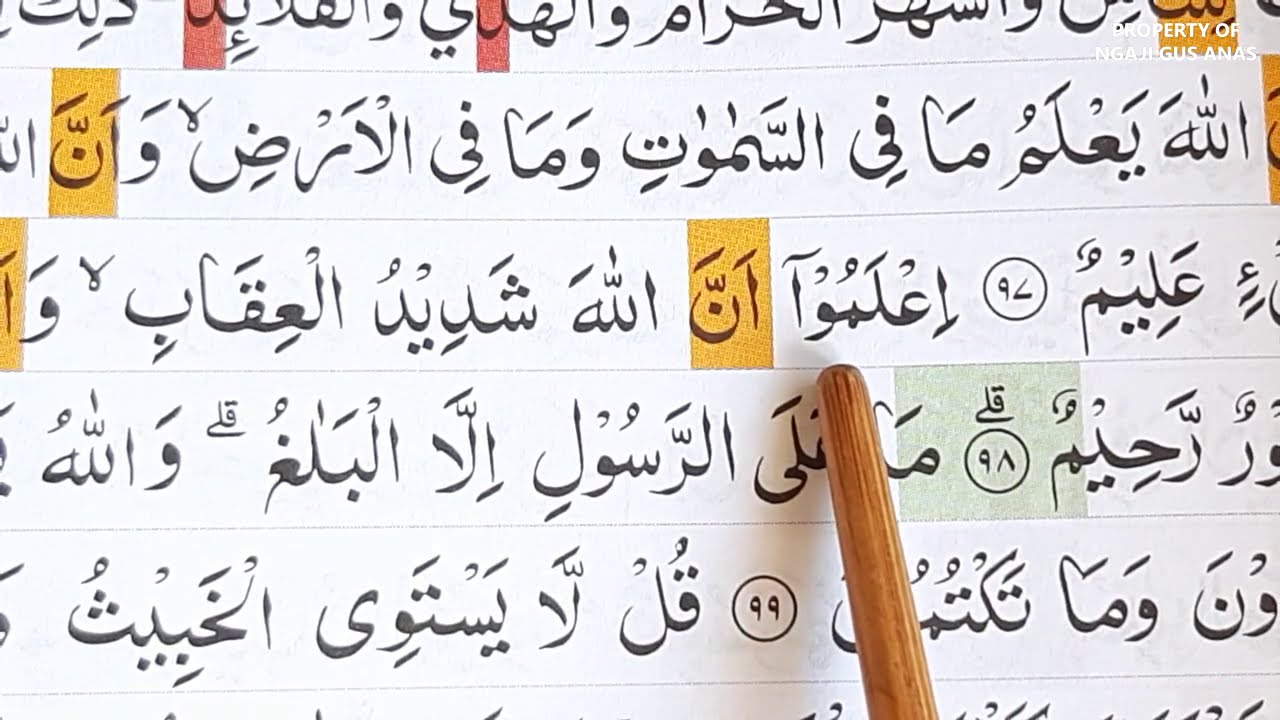 PROPERTY OF
NGAJI GUS ANAS
وَالشَّهْرَ الْحَرَامَ وَالْهَدْيَ وَالْقَلَاۤئِدَ ذٰلِكَ
اللّٰهَ يَعْلَمُ مَا فِى السَّمٰوٰتِ وَمَا فِى الْاَرْضِۙ وَاَنَّ
عَلِيْمٌ ٩٧ اِعْلَمُوْٓا اَنَّ اللّٰهَ شَدِيْدُ الْعِقَابِۙ وَ
رَّحِيْمٌۗ ٩٨ مَا الرَّسُوْلِ اِلَّا الْبَلٰغُۗ وَاللّٰهُ
وَمَا ٩٩ قُلْ لَّا يَسْتَوِى الْخَبِيْثُ